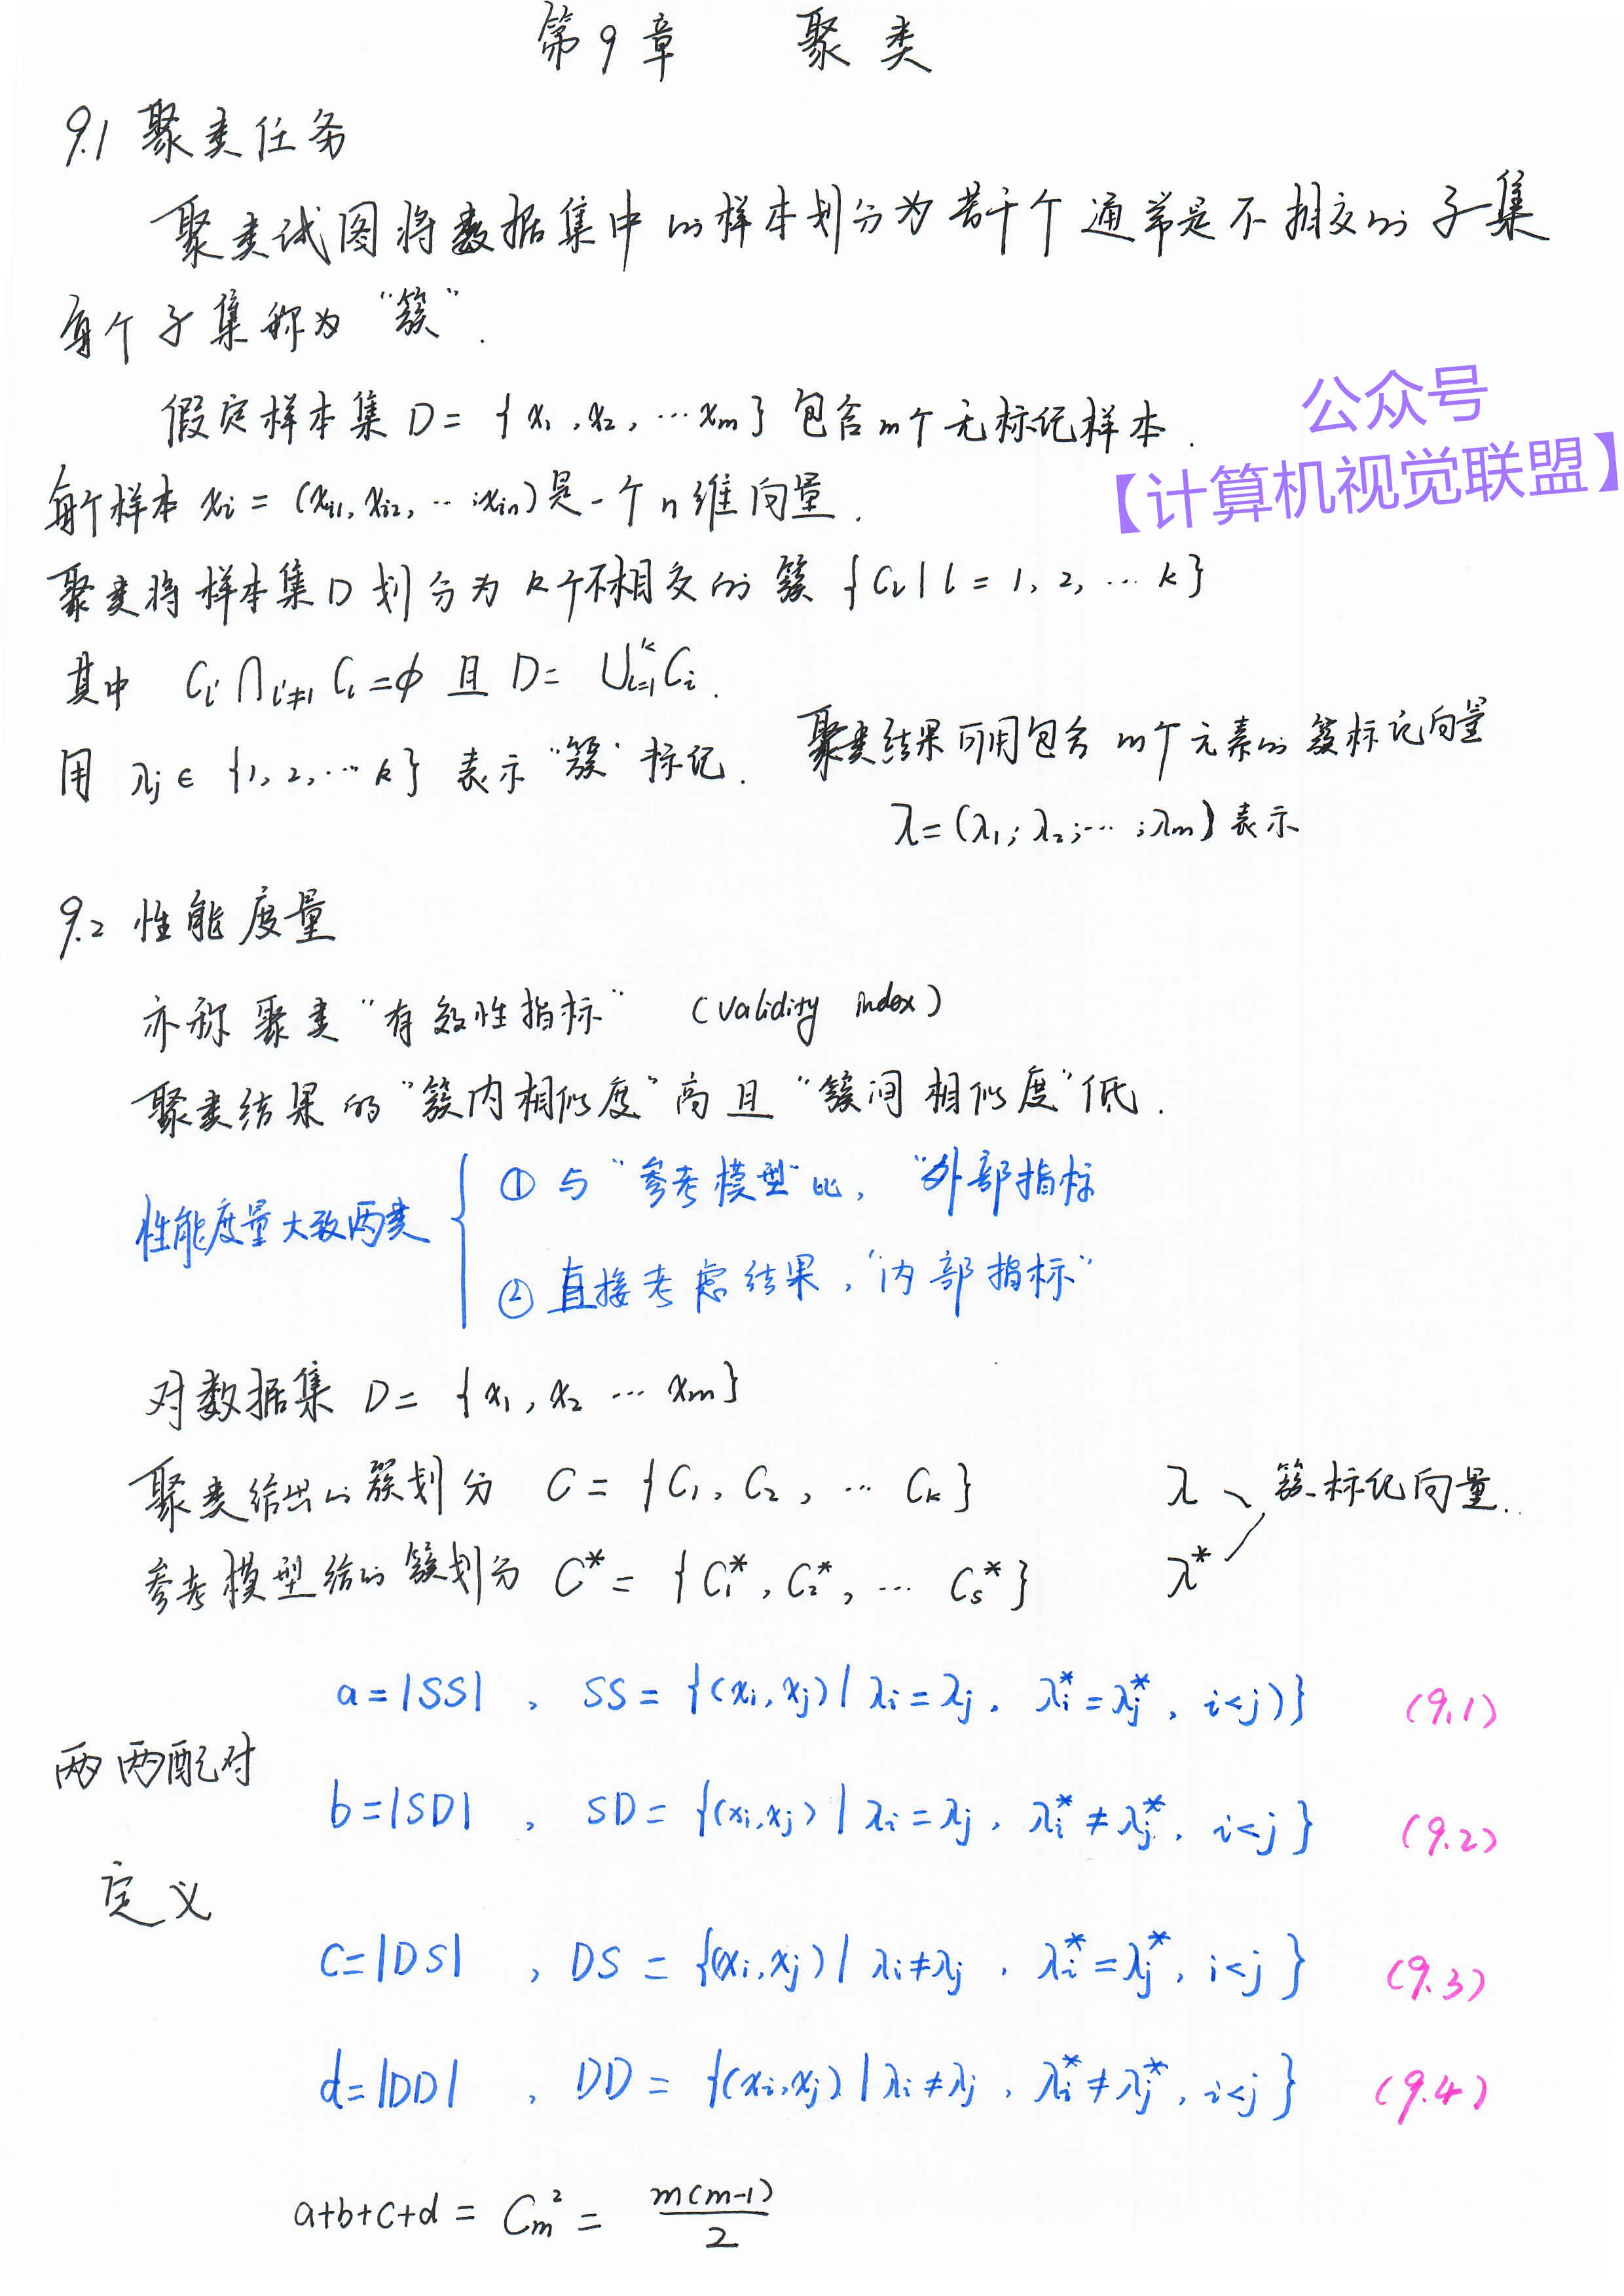 第9章 聚类
9.1 聚类任务
聚类试图将数据集中的样本划分为若干个通常是不相交的子集
每个子集称为“簇”.
假定样本集 D = {x₁, x₂, … xₘ} 包含m个无标记样本.
公众号
【计算机视觉联盟】
每个样本 xᵢ = (xᵢ₁, xᵢ₂, … ; xᵢₙ) 是一个 n 维向量.
聚类将样本集D 划分为 k个不相交的 簇 {Cₗ | l = 1, 2, … k}
其中 Cₗ′ ⋂ₗ′≠ₗ Cₗ = ϕ 且 D = ⋃ₗ₌₁ᵏ Cᵢ.
用 λⱼ ∈ {1, 2, … k} 表示“簇”标记.
聚类结果可用包含 m个元素的 簇标记向量
λ = (λ₁; λ₂; … ; λₘ) 表示
9.2 性能度量
亦称 聚类“有效性指标” (validity index)
聚类结果的“簇内相似度”高且“簇间相似度”低.
性能度量大致两类
① 与“参考模型”比, “外部指标
② 直接考虑结果, “内部指标”
对数据集 D = {x₁, x₂ … xₘ}
聚类给出的簇划分 C = {C₁, C₂, … Cₖ} λ 簇标记向量.
参考模型给的簇划分 C* = {C₁*, C₂*, … Cₛ*} λ*
a = |SS| , SS = {(xᵢ, xⱼ) | λᵢ = λⱼ, λᵢ* = λⱼ*, i<j)} (9.1)
两两配对
b = |SD| , SD = {(xᵢ, xⱼ) | λᵢ = λⱼ, λᵢ* ≠ λⱼ*, i<j} (9.2)
定义
C = |DS| , DS = {(xᵢ, xⱼ) | λᵢ ≠ λⱼ, λᵢ* = λⱼ*, i<j} (9.3)
d = |DD| , DD = {(xᵢ, xⱼ) | λᵢ ≠ λⱼ, λᵢ* ≠ λⱼ*, i<j} (9.4)
a+b+c+d = Cₘ² = m(m-1)/2